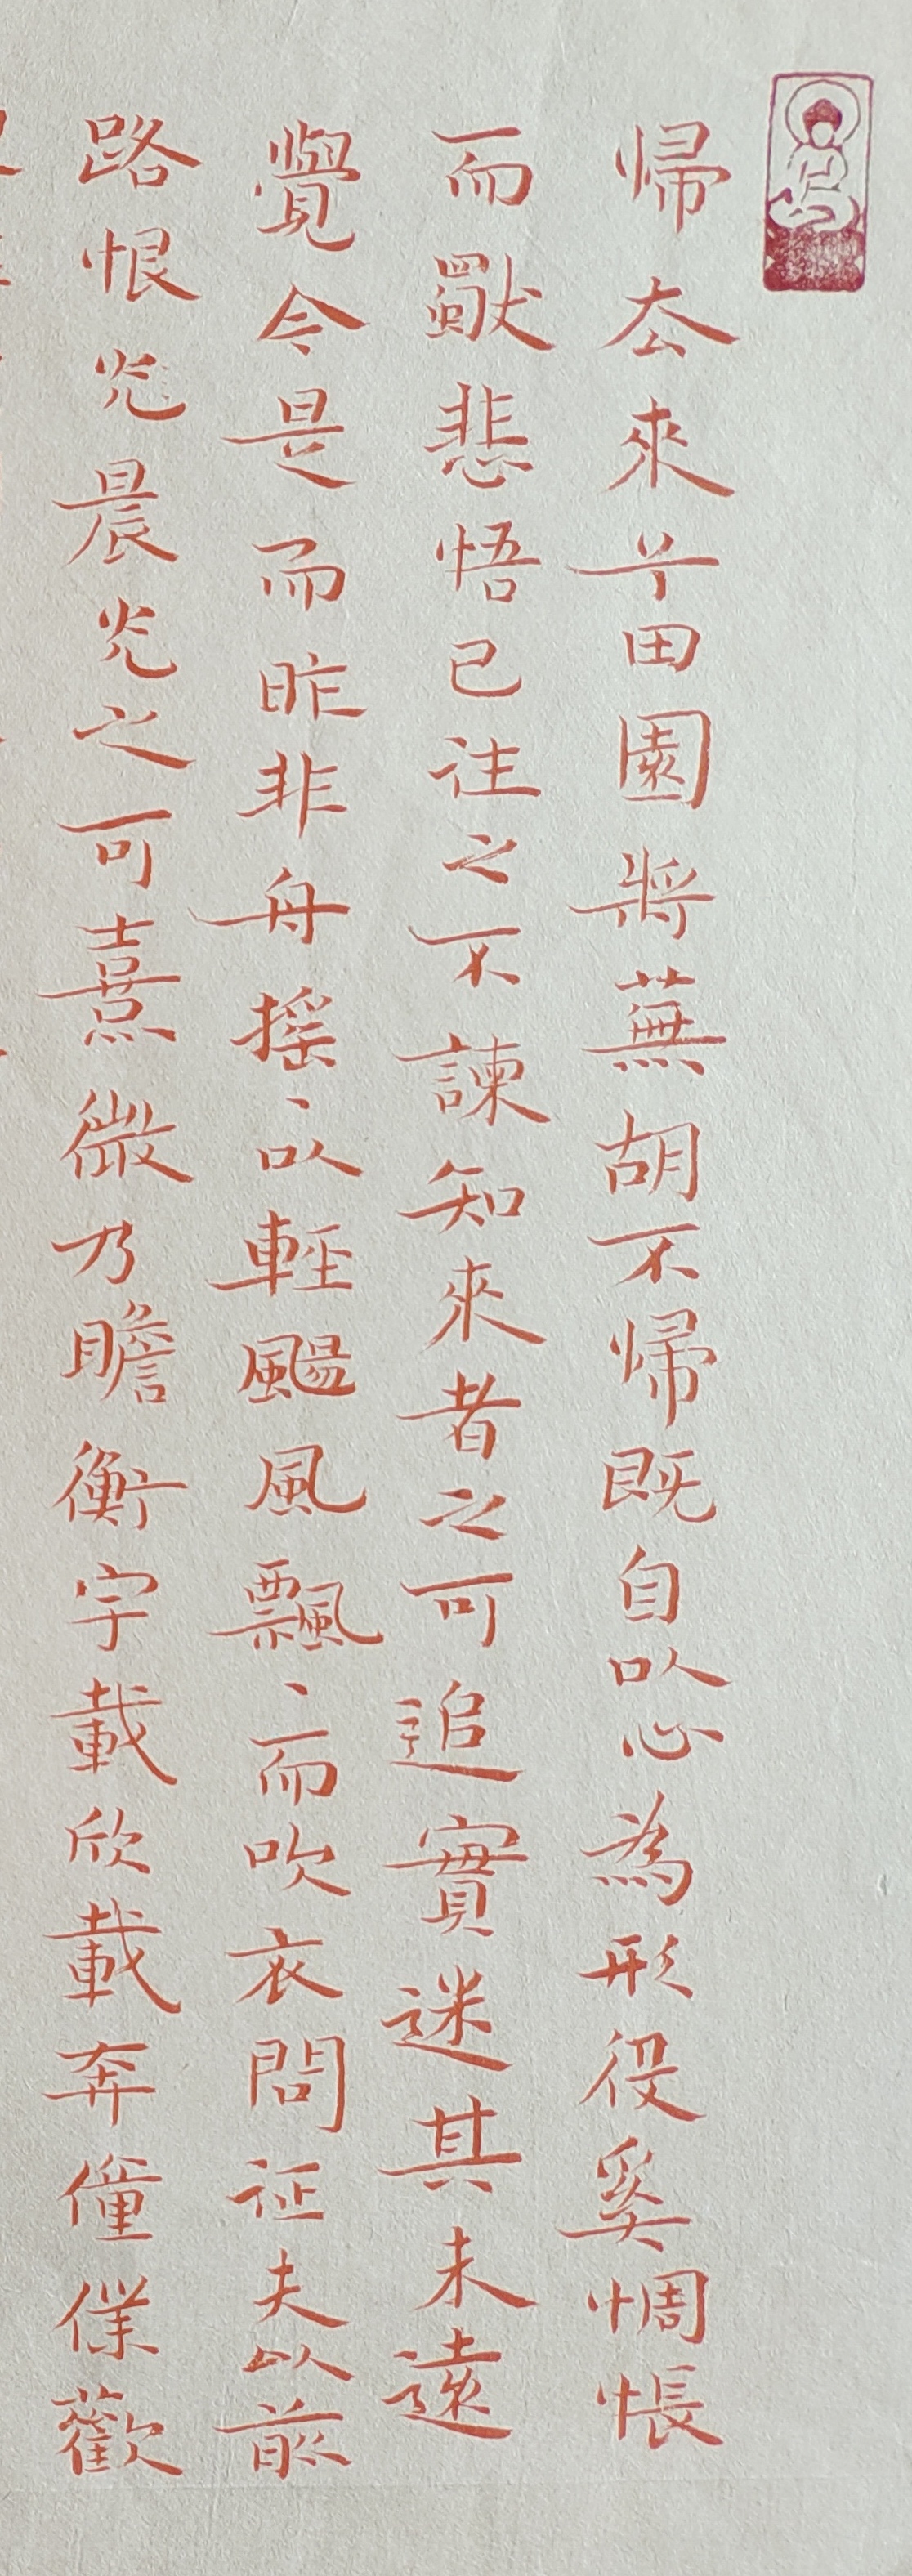 帰去來兮田園將蕪胡不帰既自以心為形役奚惆悵
而獨悲悟已往之不諫知來者之可追實迷其未遠
覺今是而昨非舟搖、以輕颺風飄、而吹衣問征夫以前
路恨光晨光之可熹微乃瞻衡宇載欣載奔僮僕歡